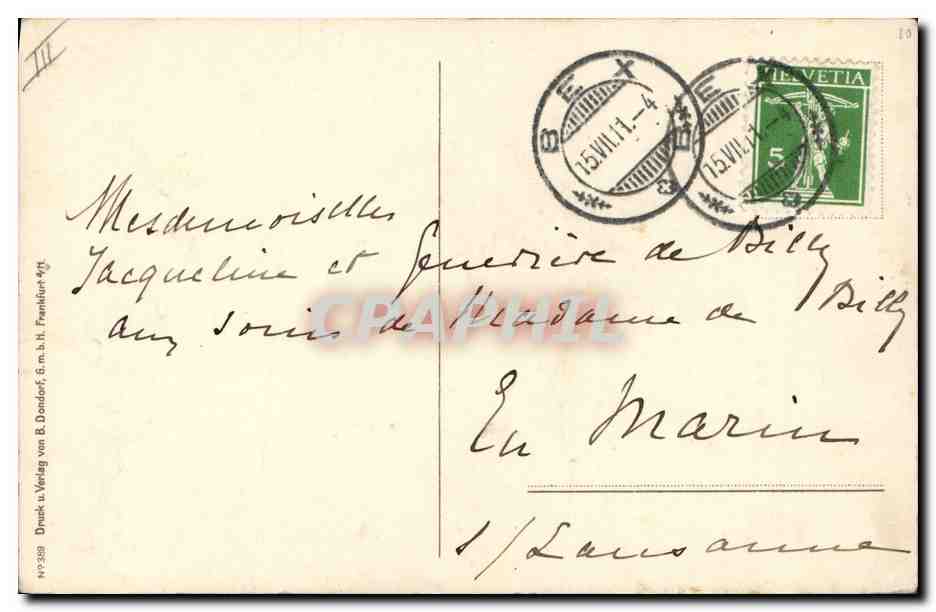 III
BEX
15.VII.11.–4
BEX
15.VII.11.–4
HELVETIA
5
Mesdemoiselles
Jacqueline et Geneviève de Billy
aux soins de Madame de Billy
En Marin
s/Lausanne
CPARPHIL
Nº 389 Druck u. Verlag von B. Dondorf, G.m.b.H. Frankfurt a/M.